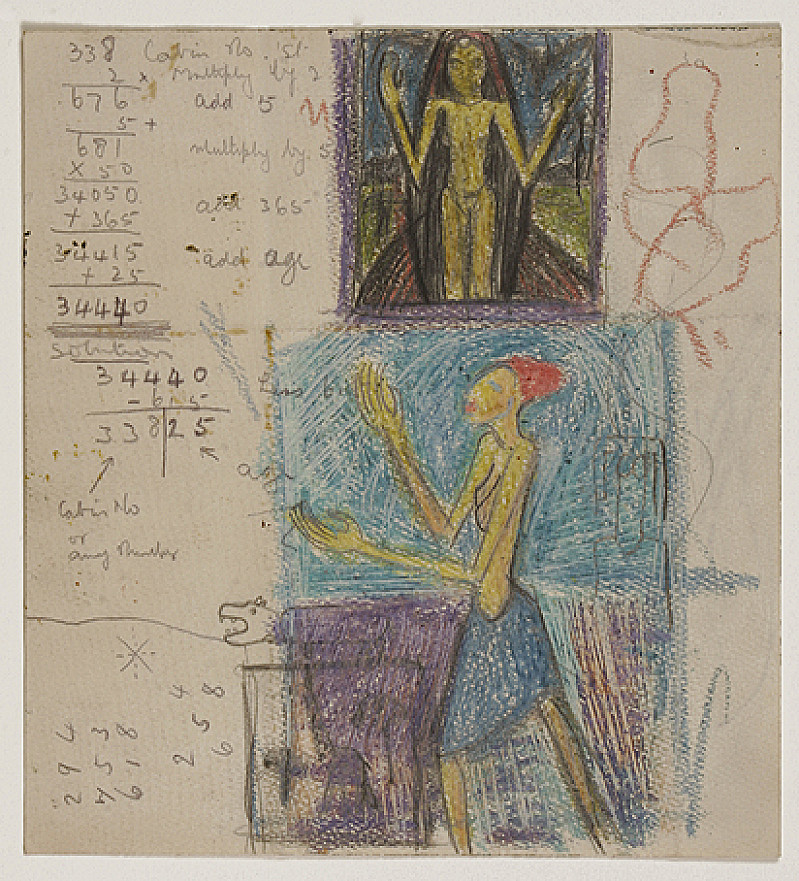 338 Cabin No.
2 x multiply by 2
676 add 5
5 +
681 multiply by 5
x 50
34050 add 365
+ 365
34415 add age
+ 25
34440
Solution
34440 Less
- 615
33825
Cabin No
or
any Number
4 8
4 3 8 5
9 5 1 2 6
2 7 6